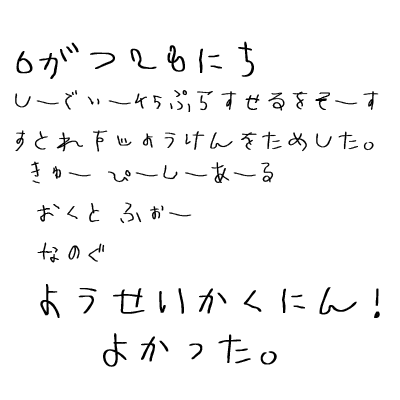 6がつ26にち
しーでぃーわらぷらすせるをそーす
すとれすじょうけんをためした。
きゅーぴーしーあーる
おくとふぉー
なのぐ
ようせいかくにん!
よかった。